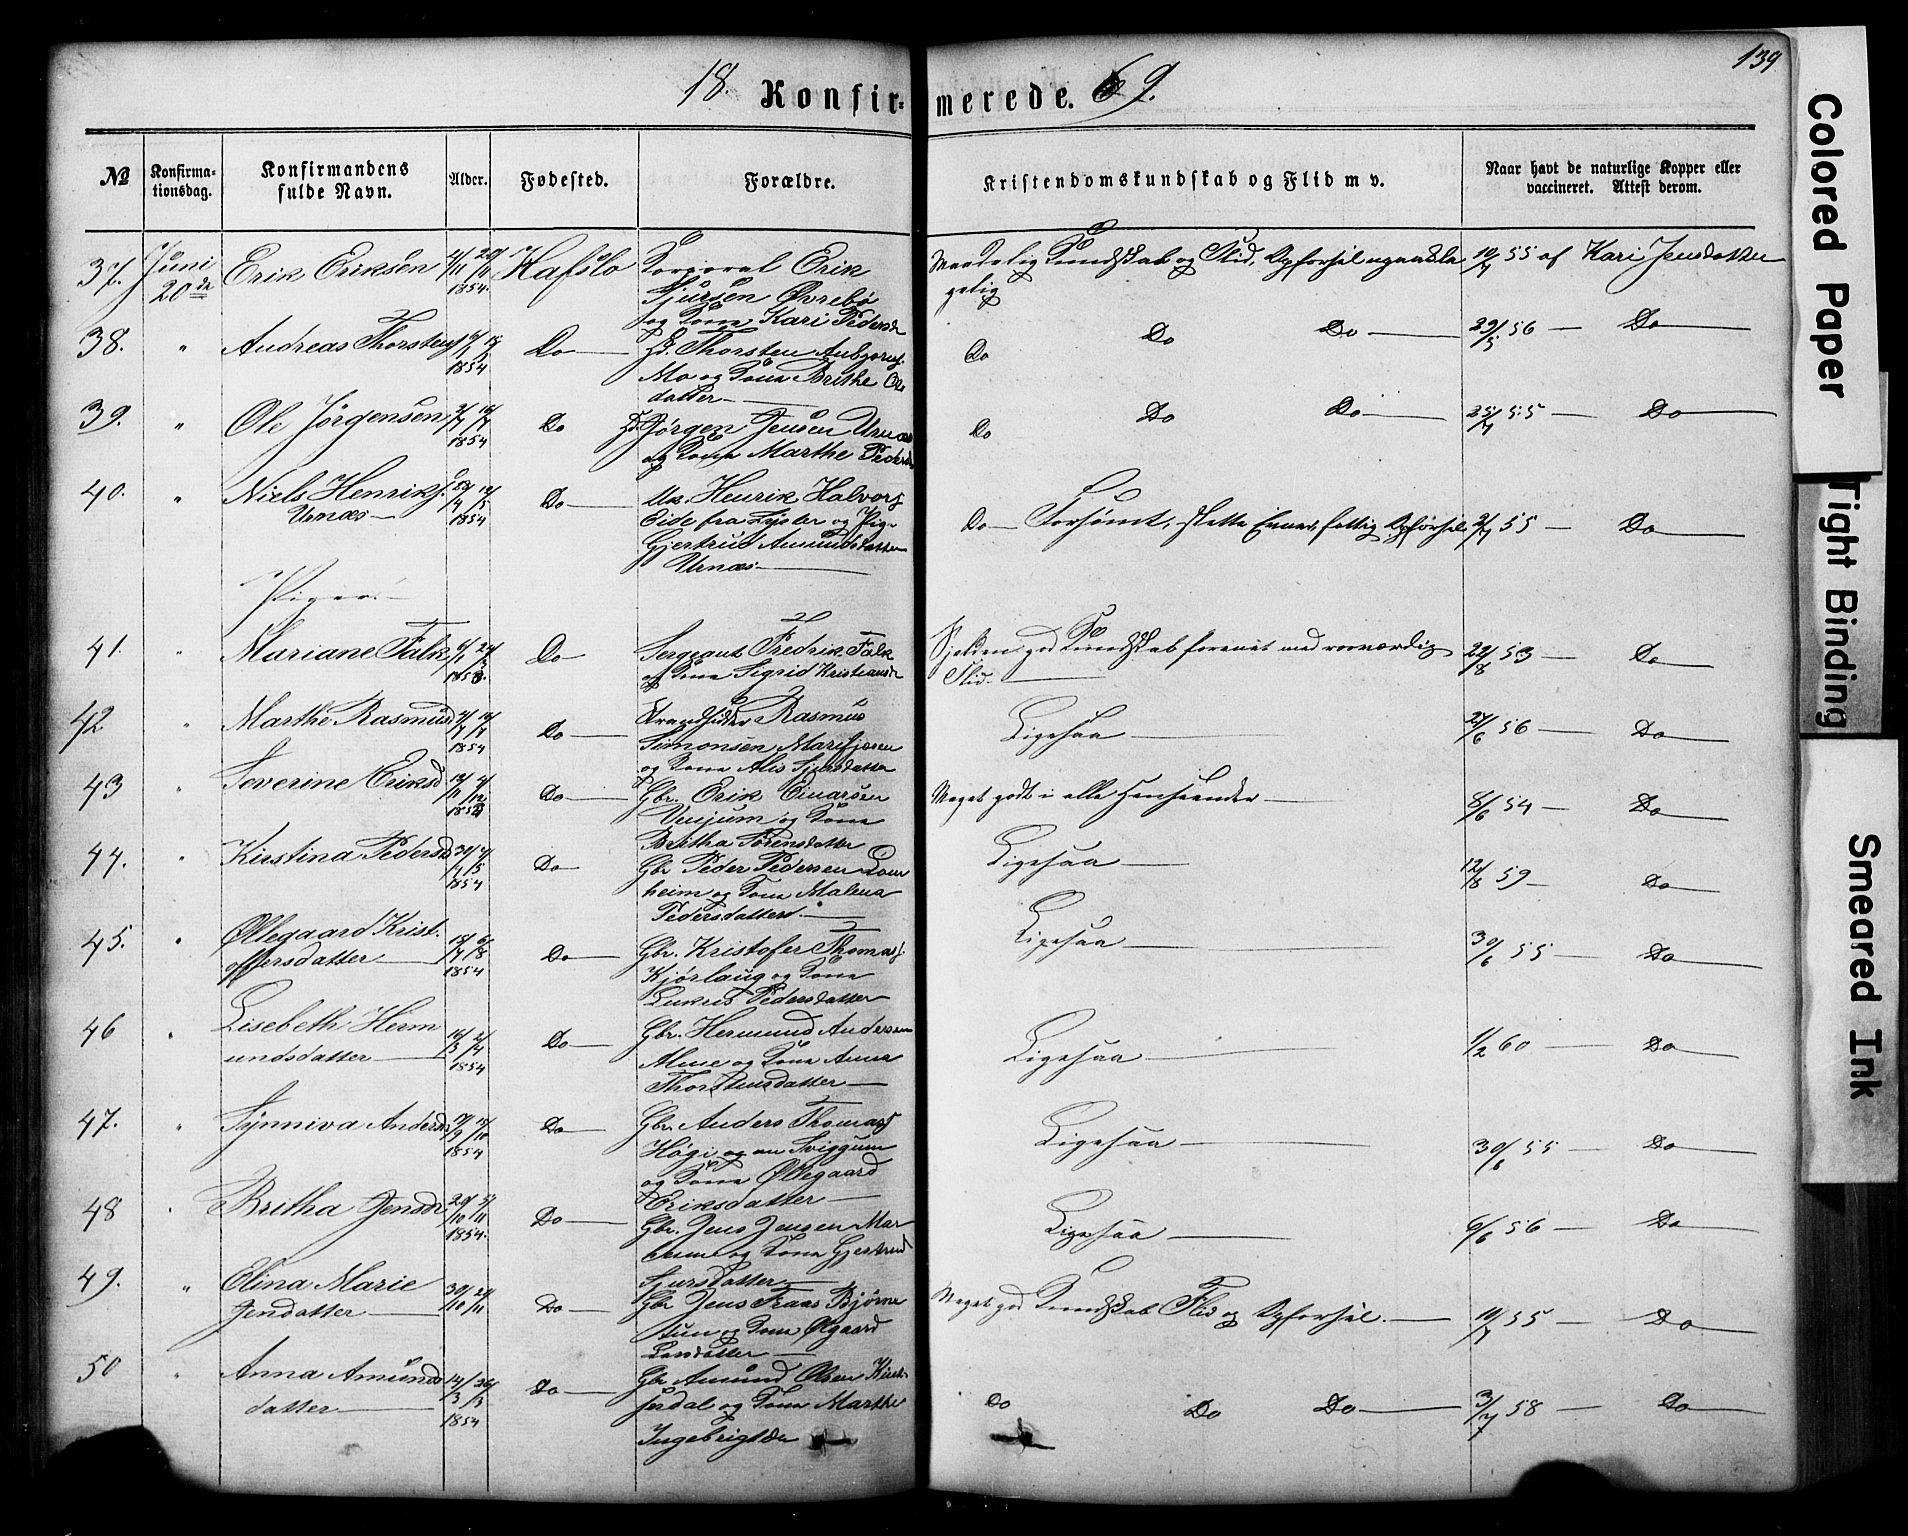 139
18 Konfirmerede. 69.
№
Konfirmationsdag.
Konfirmandens fulde Navn.
Alder.
Fødested.
Forældre.
Kristendomskundskab og Flid m v.
Naar havt de naturlige Kopper eller
vaccineret. Attest derom.
37. Juni 20de Erik Eriksen 1854. Hafslo Korporal Erik
Sjursen Øvrebø
og Kone Kari Pedersdr
Maadelig Kundskab og Flid, Opførsel 55 af Kari Jensdatter
38. " Andreas Thorstens 1854 Do Thorsten
Mo og Kone Brithe Ole
datter
Do Do Do 29/5 56 Do
39. " Ole Jørgensen 1854 Do Jørgen Jensen Urnæs
og Kone Marthe Pedersd
Do Do Do 55 Do
40. " Niels Henriks. Urnæs 1854 Do Henrik Halvors
Eide fra Lyster og Pige
Gjertrud Amundsdatter
Urnæs
Do Forsømt, slette Evner, Opførsel 55 Do
Piger.
41. " Mariane Falk Do Sergeant Fredrik Falk
og Kone Sigrid Kristiansdr
Sjelden god Kundskab forenet med
Flid. 53 Do
42 " Marthe Rasmusd 1854 Do Strandsidder Rasmus
Simonsen Marifjæren
og Kone Alis Sjursdatter
Ligesaa 56 Do
43 Severine Eriksd Do Gbr. Erik Einarsen
Venjum og Kone
Britha Sørensdatter
Meget godt i alle Henseender 8/6 54 Do
44. " Kirstina Pedersd 1854 Do Gbr Peder Pedersen Lom
heim og Kone Malena
Pedersdatter
Ligesaa 12/8 59 Do
45. " Øllegaard Krist.
offersdatter 1854 Do Gbr. Kristofer Thomas
Kjørlaug og Kone
Lukris Pedersdatter
Ligesaa 30/6 55 Do
46 " Lisebeth Herm
undsdatter 1854 Do Gbr. Hermund Andersen
Alme og Kone Anna
Thorstensdatter
Ligesaa 1/2 60 Do
47. " Synniva Andersd 1854 Do Gbr. Anders Thomas
Høgi og nu Sviggum
og Kone Øllegaard
Eriksdatter
Ligesaa 30/6 55 Do
48 " Britha Jensdr 1854. Do Gbr. Jens Jensen Mar
heim og Kone Gjertrud
Sjursdatter
Ligesaa 6/6 56 Do
49. " Elina Marie
Jensdatter Do Gbr Jens Bjørne
tun og Kone Ølgaard
Larsdatter
Meget god Kundskab Flid og Opførsel. 55 Do
50 " Anna Amunds
datter 14/3 26/3 1854 Do Gbr Amund Olsen
og Kone Marthe
Ingebrigtdr
Do Do Do 3/7 58 Do
Colored Paper
Tight Binding
Smeared Ink